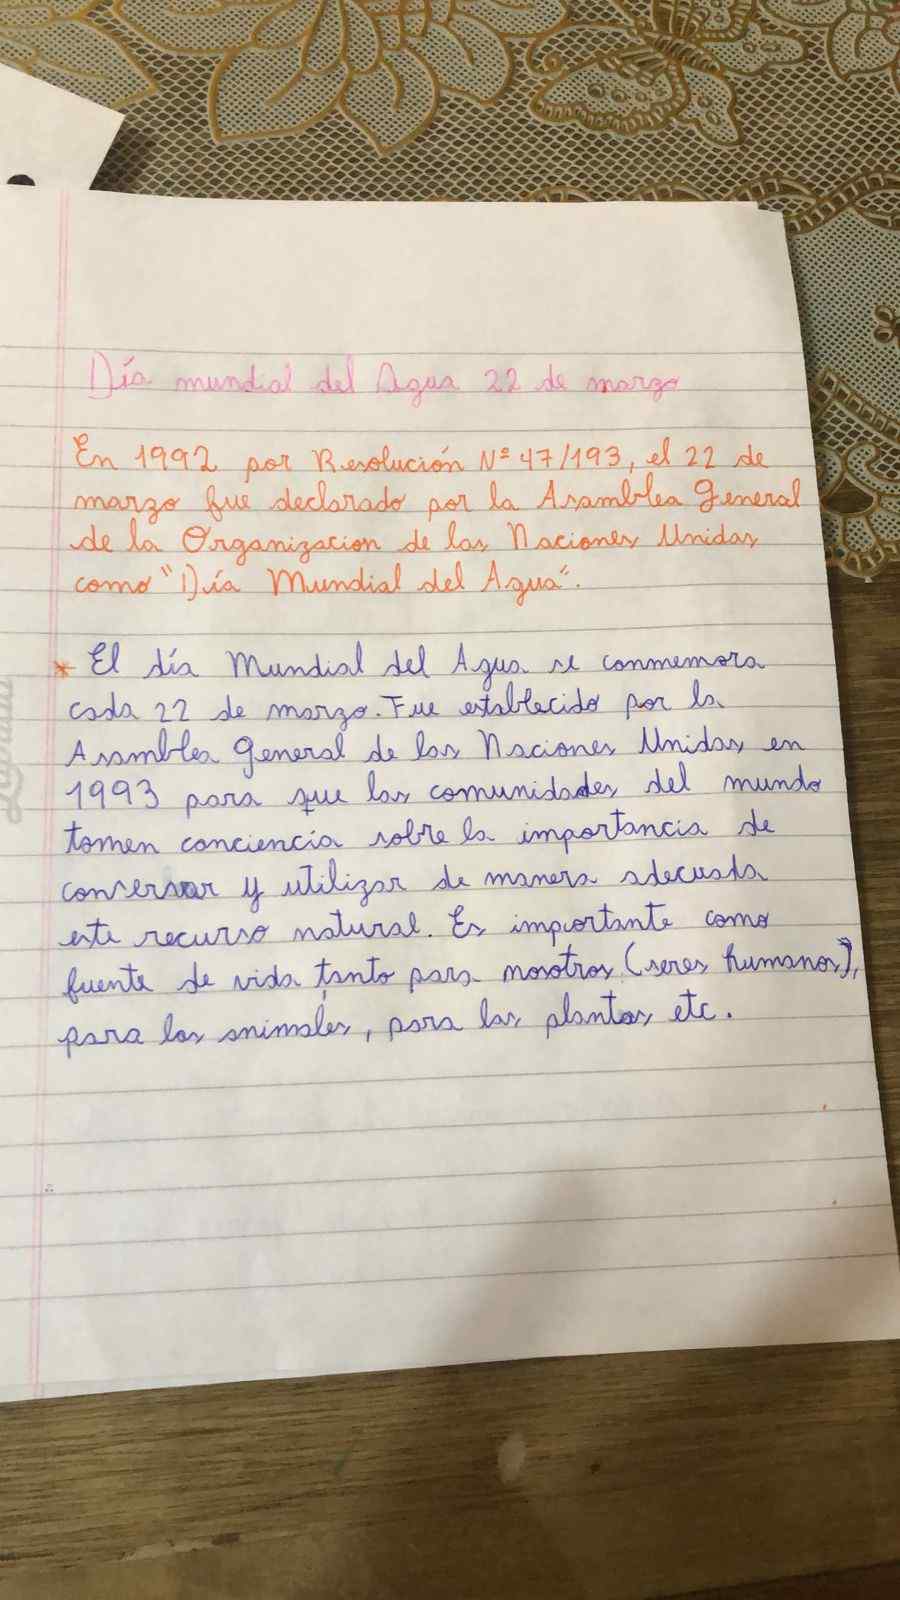 Día mundial del Agua 22 de marzo
En 1992 por Resolución Nº 47/193, el 22 de
marzo fue declarado por la Asamblea General
de la Organizacion de las Naciones Unidas
como "Día Mundial del Agua".
* El día Mundial del Agua se conmemora
cada 22 de marzo. Fue establecido por la
Asamblea General de las Naciones Unidas en
1993 para que las comunidades del mundo
tomen conciencia sobre la importancia de
conservar y utilizar de manera adecuada
este recurso natural. Es importante como
fuente de vida tanto para nosotros (seres humanos),
para los animales, para las plantas etc.